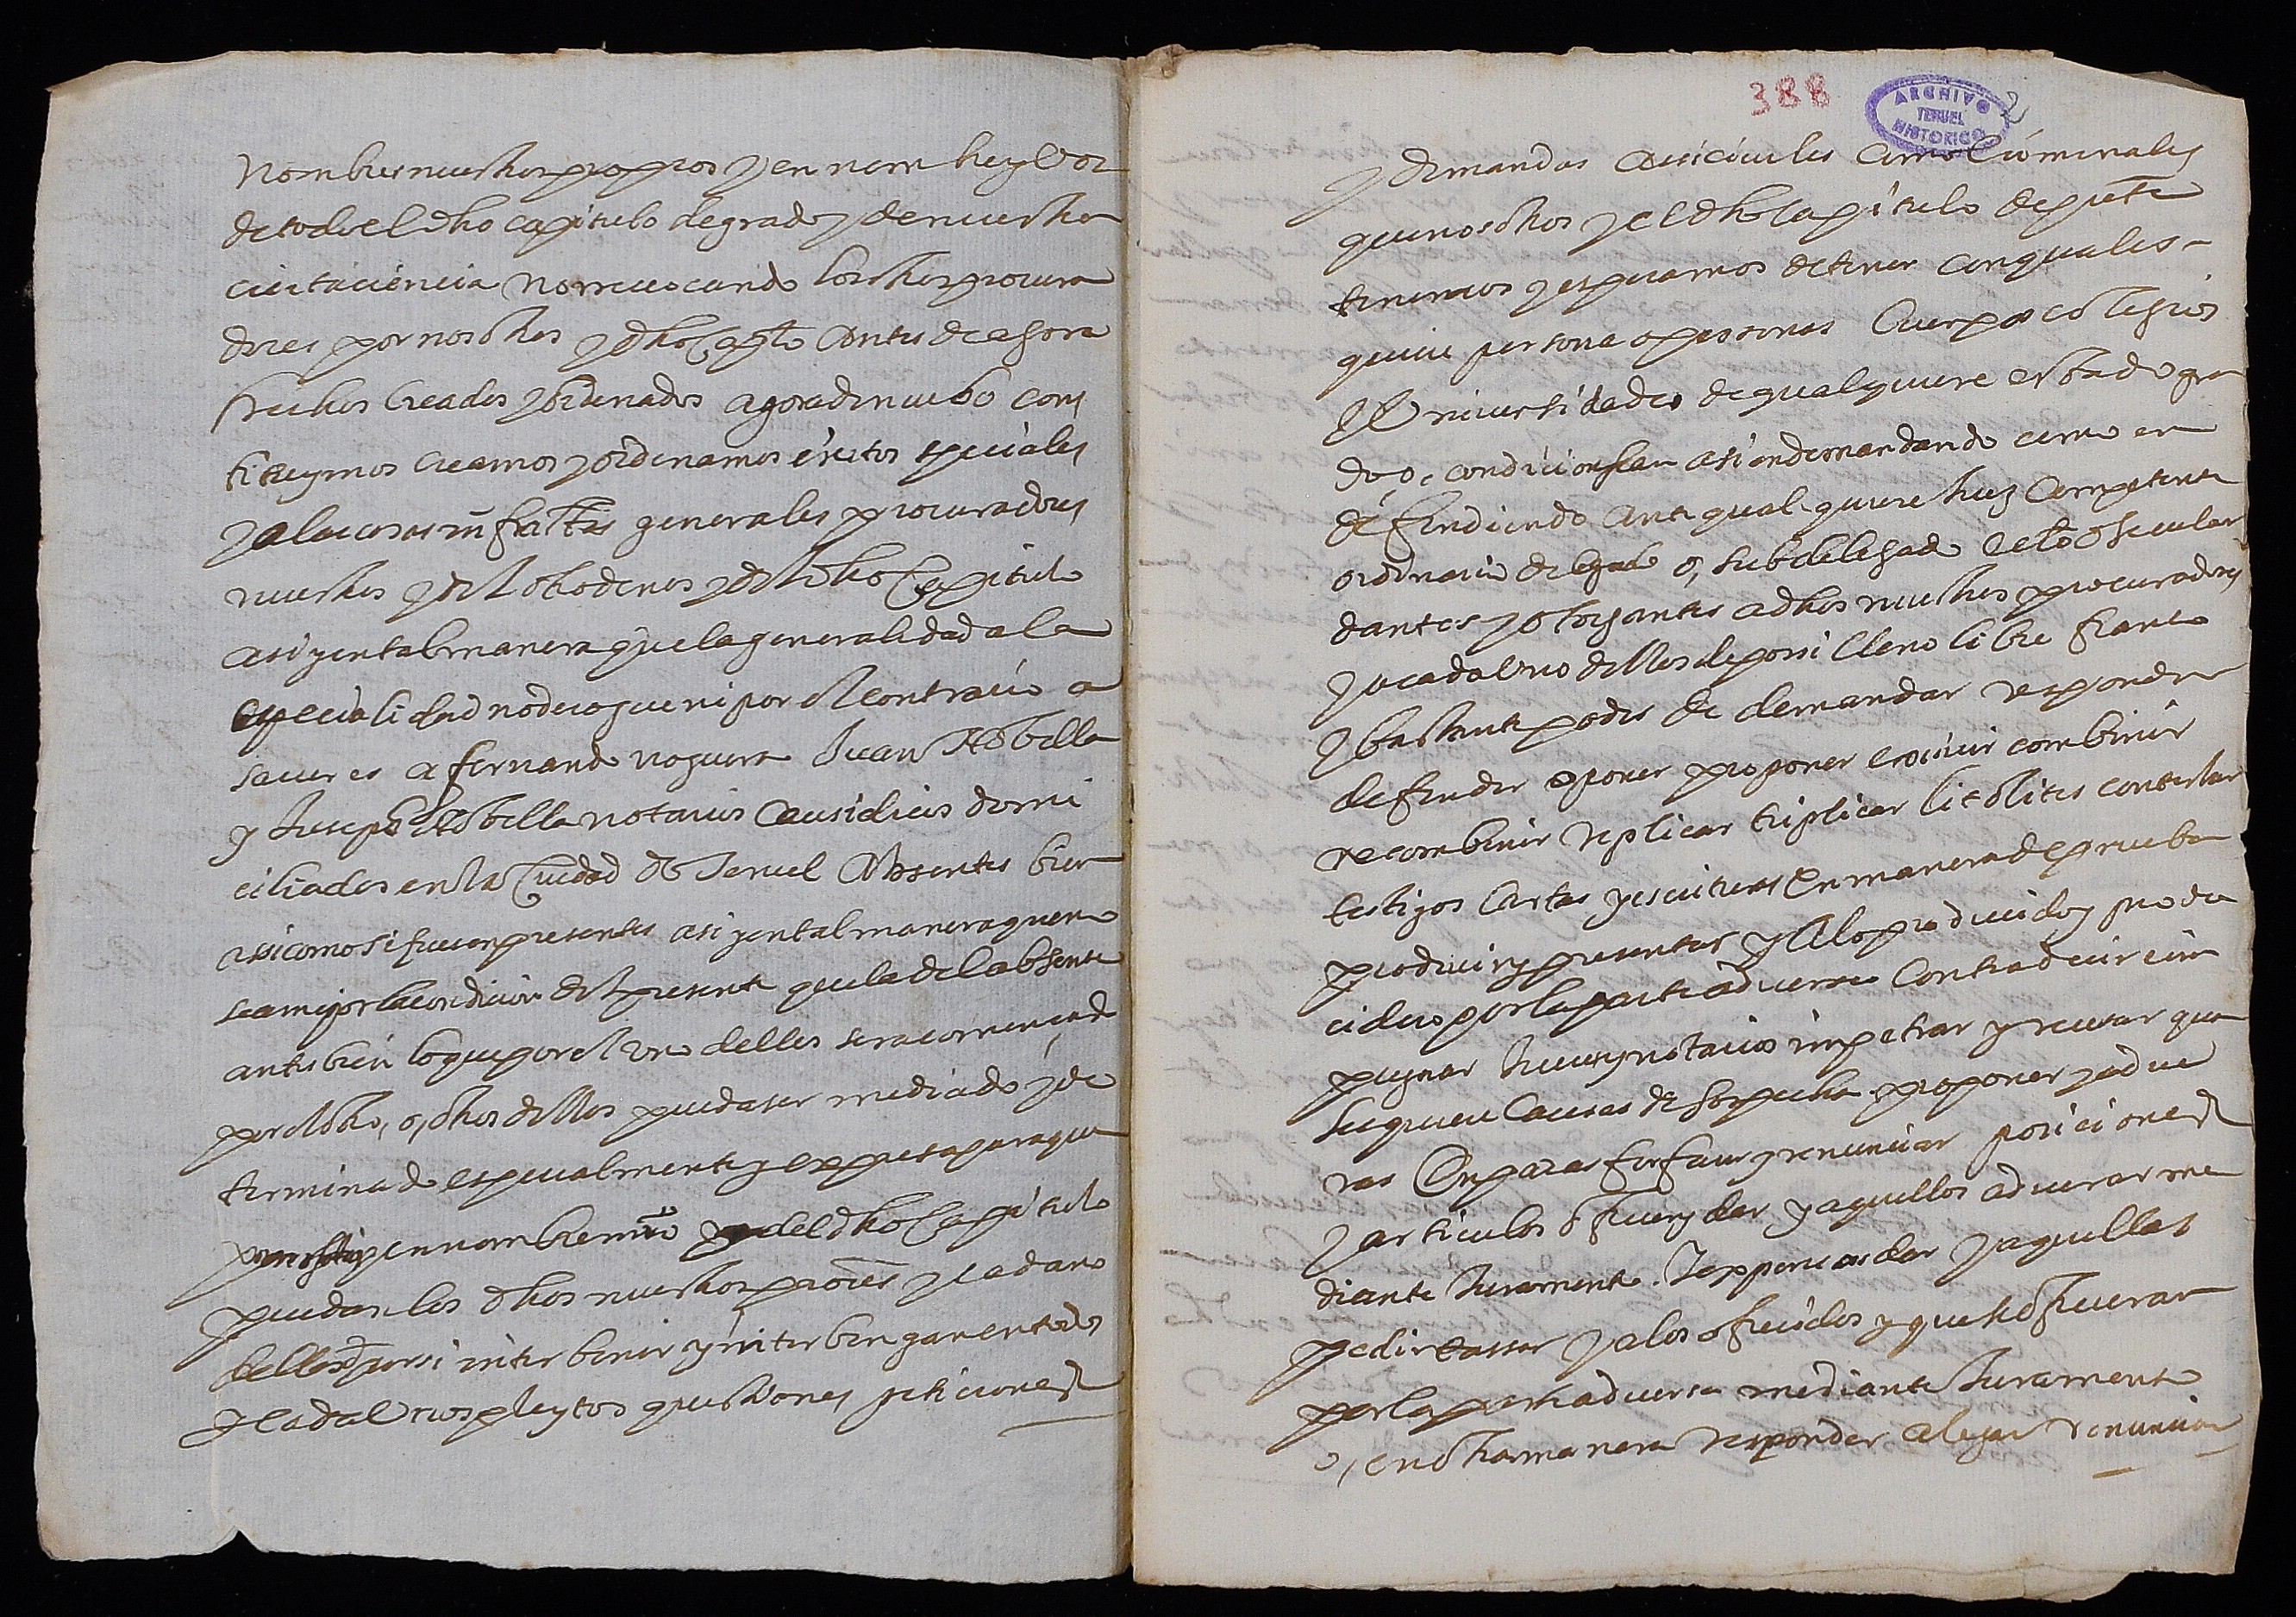 Nombres nuestros propios y en nombre y voz
de todo el dho capitulo de grado y de nuestra
cierta ciencia no rrevocando los otros procura
dores por nos otros y dho Cap.to antes de agora
hechos creados y ordenados agora de nuebo cons
tituymos creamos y ordenamos ciertos speciales
y a las cosas infrattas generales procuradores
nuestros y del otro de nos y del dho Capitulo
asi y en tal manera que la generalidad a la
especialidad no derogue ni por el contrario a
saver es a fernando noguera Juan
y Jusepe notarios causidicos domi
ciliados en la Ciudad de Teruel Absentes bien
asi como si fuesen presentes asi y en tal manera que no
sea mejor la condicion del presente que la del absente
antes bien lo que por el uno dellos sera comencado
por el otro, o, otros dellos pueda ser mediado y de
terminado especialmente y expresa para que
por nos y en nombre nro y del dho Capitulo
puedan los dhos nuestros proc̄res y cada uno
dellos de por si interbenir y interbengan en todos
y cada unos pleytos questiones peticiones
388
ARCHIVO
TERUEL
HISTORICO
2
y demandas asi civiles como criminales
que nos otros y el dho Capitulo de pnte
tenemos y esperamos de tener con quales
quiere persona o personas Cuerpos colegios
y Universidades de qualquiere estado gra
do, o, condicion sean asi en demandando como en
defendiendo ante qualquiere Juez competente
ordinario delegado o, subdelegado ecco o secular
dantes y otorgantes a dhos nuestros procuradores
y a cada uno dellos de por si lleno libre franco
y bastante poder de demandar responder
defender oponer proponer convenir
recombenir replicar triplicar lit o lites contestar
testigos cartas y escrituras en manera de prueba
producir y presentar y a lo producido y produ
cidero por la parte adversa contradecir e im
pugnar Juez y notario impetrar y recusar qua
lesquiere causas de sospecha proponer y adve
rar y renunciar posiciones
y articulos ofrecer y dar y aquellos adverar me
diante Juramento y aquellas
pedir tassar y a los ofrecidos y que se ofreceran
por la parte adversa mediante Juramento
o, en otra manera responder alegar renunciar